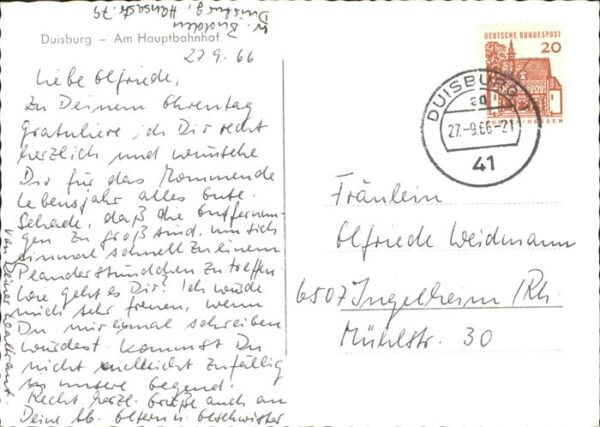 Duisburg, Hansastr. 75
Duisburg – Am Hauptbahnhof
27.9.66
Liebe Elfriede,
Zu Deinem Ehrentag
gratuliere ich Dir recht
herzlich und wünsche
Dir für das kommende
Lebensjahr alles Gute.
Schade, daß die Entfernun-
gen zu groß sind, um sich
einmal schnell zu einem
Plauderstündchen zu treffen.
Wie geht es Dir? Ich würde
mich sehr freuen, wenn
Du mir einmal schreiben
würdest. Kommst Du
nicht vielleicht zufällig
in unsere Gegend.
Recht herzl. Grüße auch an
Deine lb. Eltern u. Geschwister
von Deiner
DEUTSCHE BUNDESPOST
20
DUISBURG
27.-9.66-21
41
Fräulein
Elfriede Weidmann
6507 Ingelheim / Rh.
Mühlstr. 30